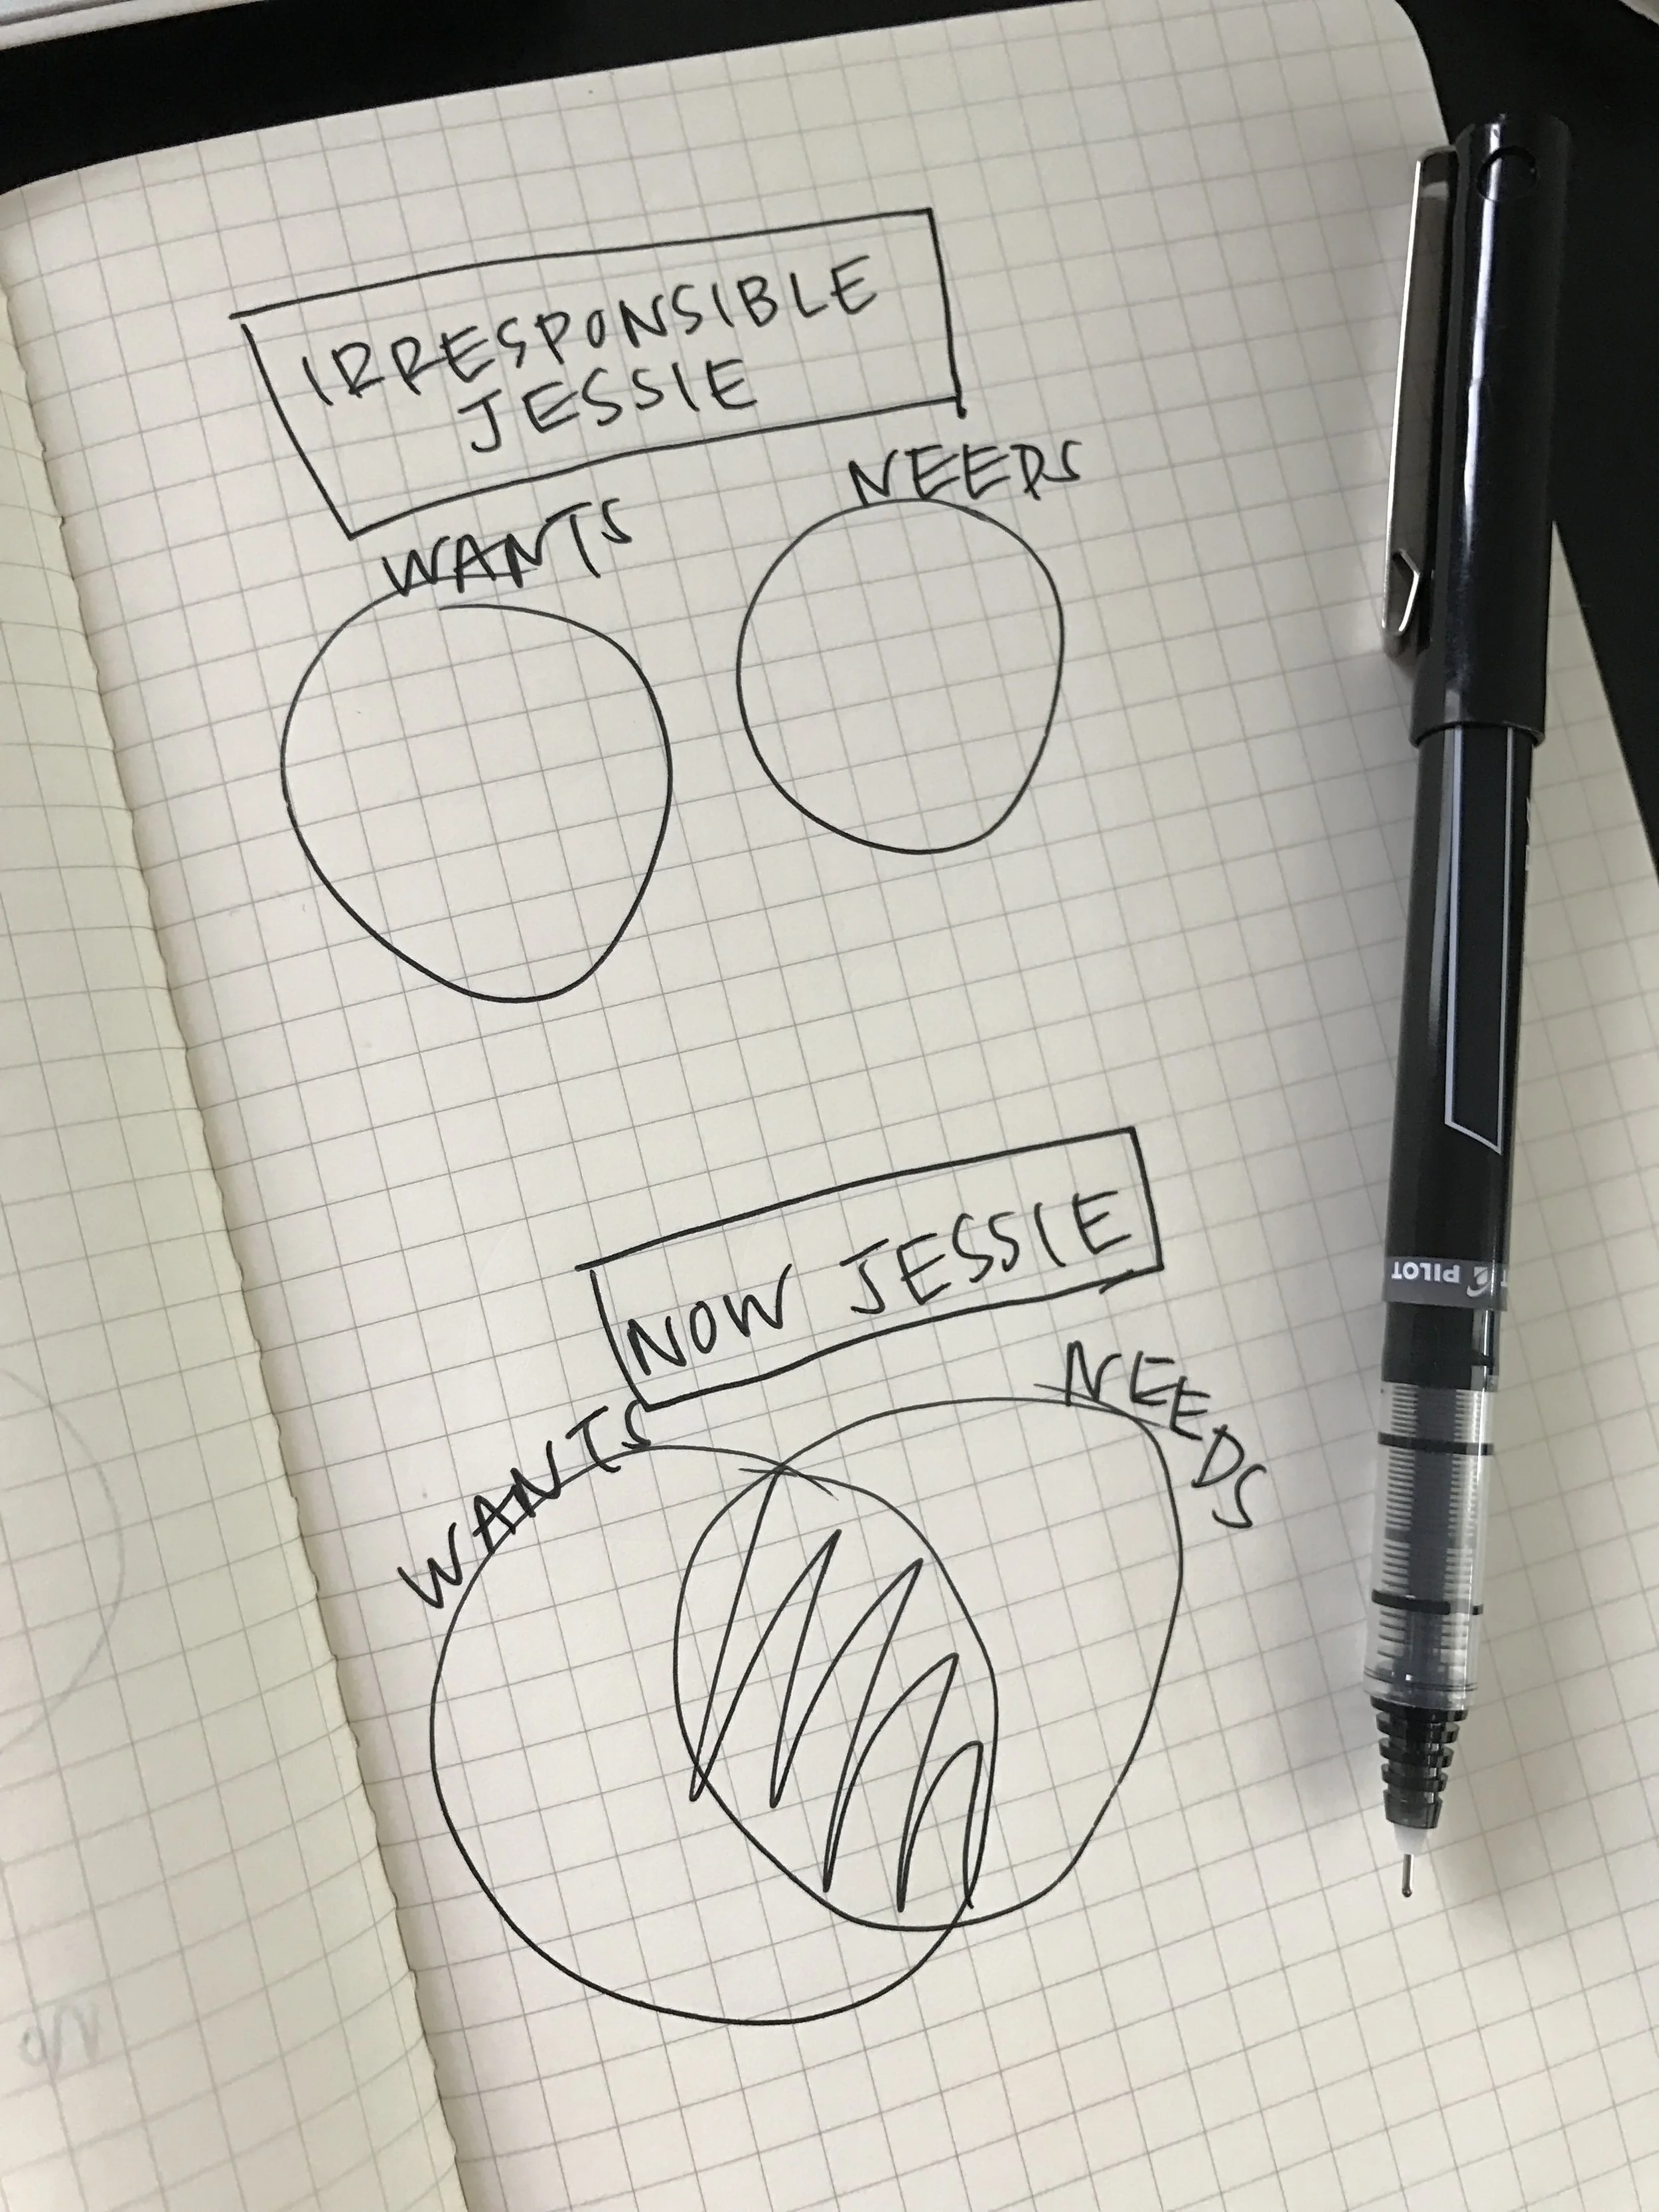 IRRESPONSIBLE
JESSIE
WANTS
NEEDS
NOW JESSIE
WANTS
NEEDS
PILOT